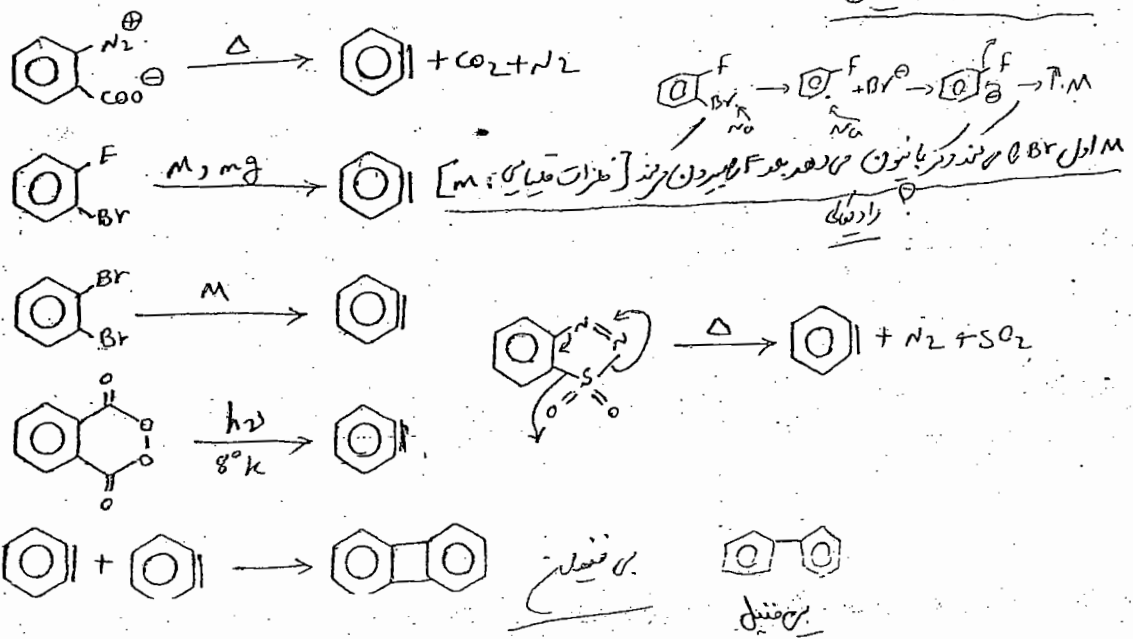 N2⊕
COO⊖
Δ
+ CO2 + N2
F
Br
Na
F
+ Br⊖
Na
F
⊖
M
F
Br
M, mg
M اول Br را می کند و کربانیون می دهد بعد F را بیرون می کند [فلزات قلیایی: m]
رادیکالی
Br
Br
M
N=N
S
O O
Δ
+ N2 + SO2
O
O
O
O
hν
8°k
+
بی فنیلن
بی فنیل